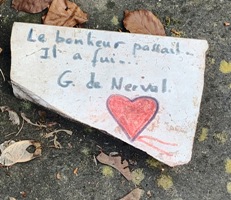 Le bonheur passait...
Il a fui...
G. de Nerval.